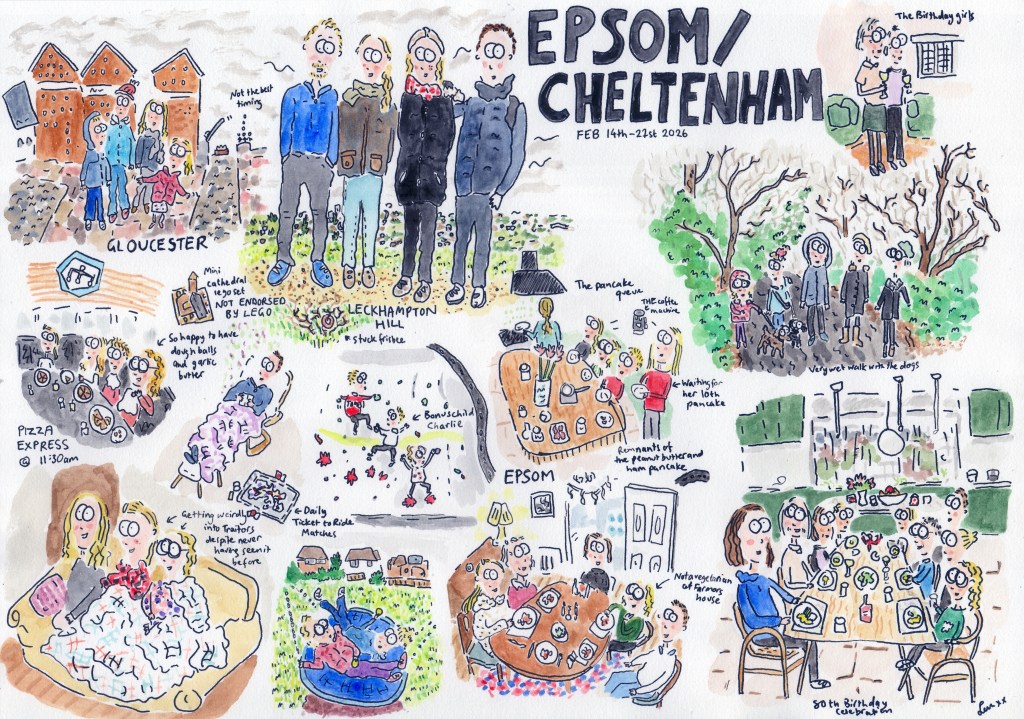 EPSOM/
CHELTENHAM
FEB 14th-22st 2026
The Birthday girls
Not the best
timing
GLOUCESTER
Mini
cathedral
lego set
NOT ENDORSED
BY LEGO
LECKHAMPTON
HILL
stuck frisbee
The pancake
queue
THE coffee
machine
Waiting for
her 10th
pancake
Remnants of
the peanut butter and
ham pancake
Very wet walk with the dogs
So happy to have
dough balls
and garlic
butter
PIZZA
EXPRESS
@ 11:30am
Bonus child
Charlie
EPSOM
Getting weirdly
into Traitors
despite never
having seen it
before
Daily
Ticket to Ride
Matches
Not a vegetarian
at Farmers
house
80th Birthday
celebration